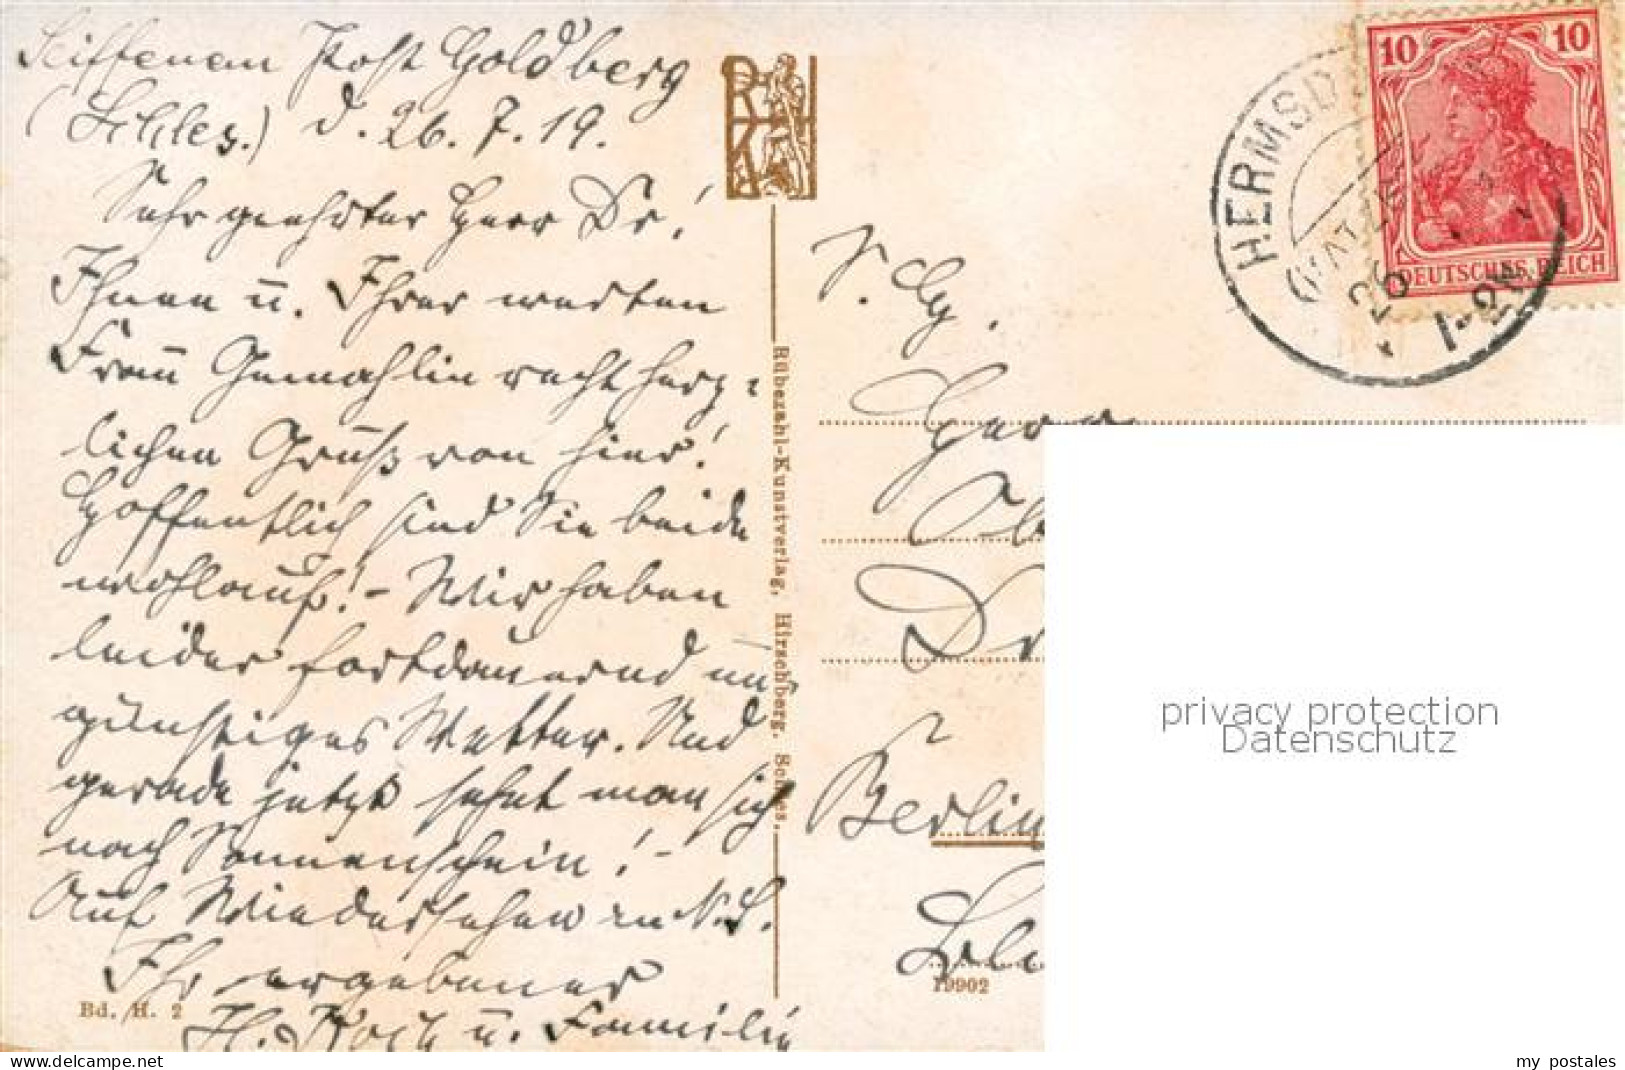 Seiffenau Post Goldberg
(Schles.) d. 26. 7. 19.
Sehr geehrter Herr Dr.!
Ihnen u. Ihrer werten
Frau Gemahlin recht herz-
lichen Gruß von hier!
Hoffentlich sind Sie beide
wohlauf! - Wir haben
leider fortdauernd un-
günstiges Wetter. Und
gerade jetzt sehnt man sich
nach Sonnenschein! -
Auf Wiedersehen in N.S.
Ihr ergebener
H. Koch u. Familie
Bd. H. 2
RKV
Rübezahl-Kunstverlag, Hirschberg, Schles.
S. Hg.
Herrn
Ob
Dr
Berlin
19902
HERMSD
(KATZB
26
1-2N
10 10
DEUTSCHES REICH
privacy protection
Datenschutz
www.delcampe.net
my postales